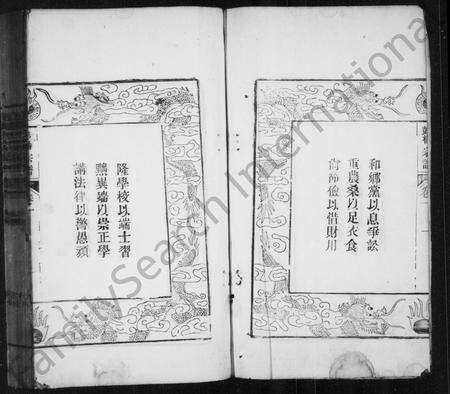 和鄉黨以息爭訟
重農桑以足衣食
尚節儉以惜財用
隆學校以端士習
黜異端以崇正學
講法律以儆愚頑
FamilySearch International